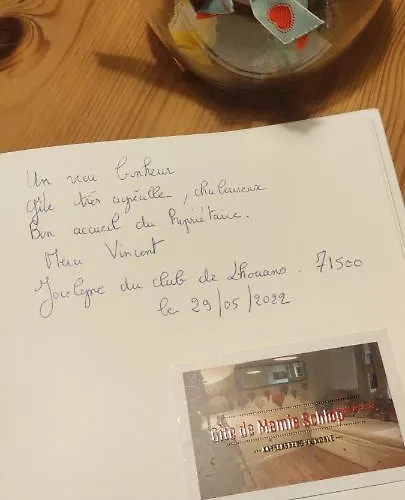 Un vrai bonheur
Gîte très agréable, chaleureux
Bon accueil du Propriétaire.
Merci Vincent
Jocelyne du club de Lhouans. 71500
le 29/05/2022
Gîte de Mamie Schlop
KAYSERSBERG VIGNOBLE